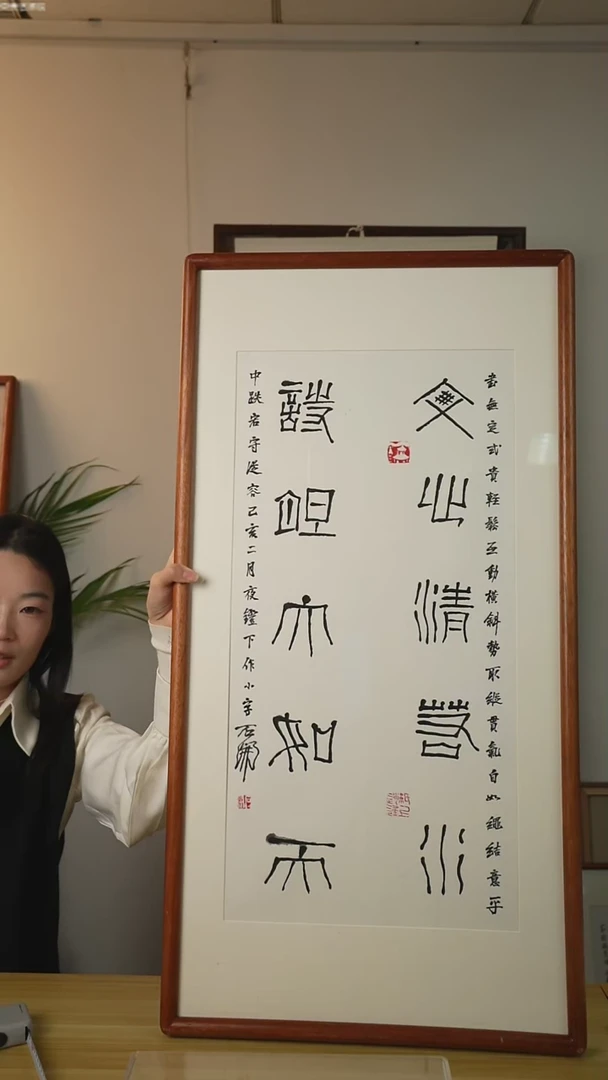 書無定式貴輕鬆互動橫斜勢取縱貫氣自如繩結意乎
文心清若水
詩胆大如天
中跌宕守從容己亥二月夜鐙下作小字石開